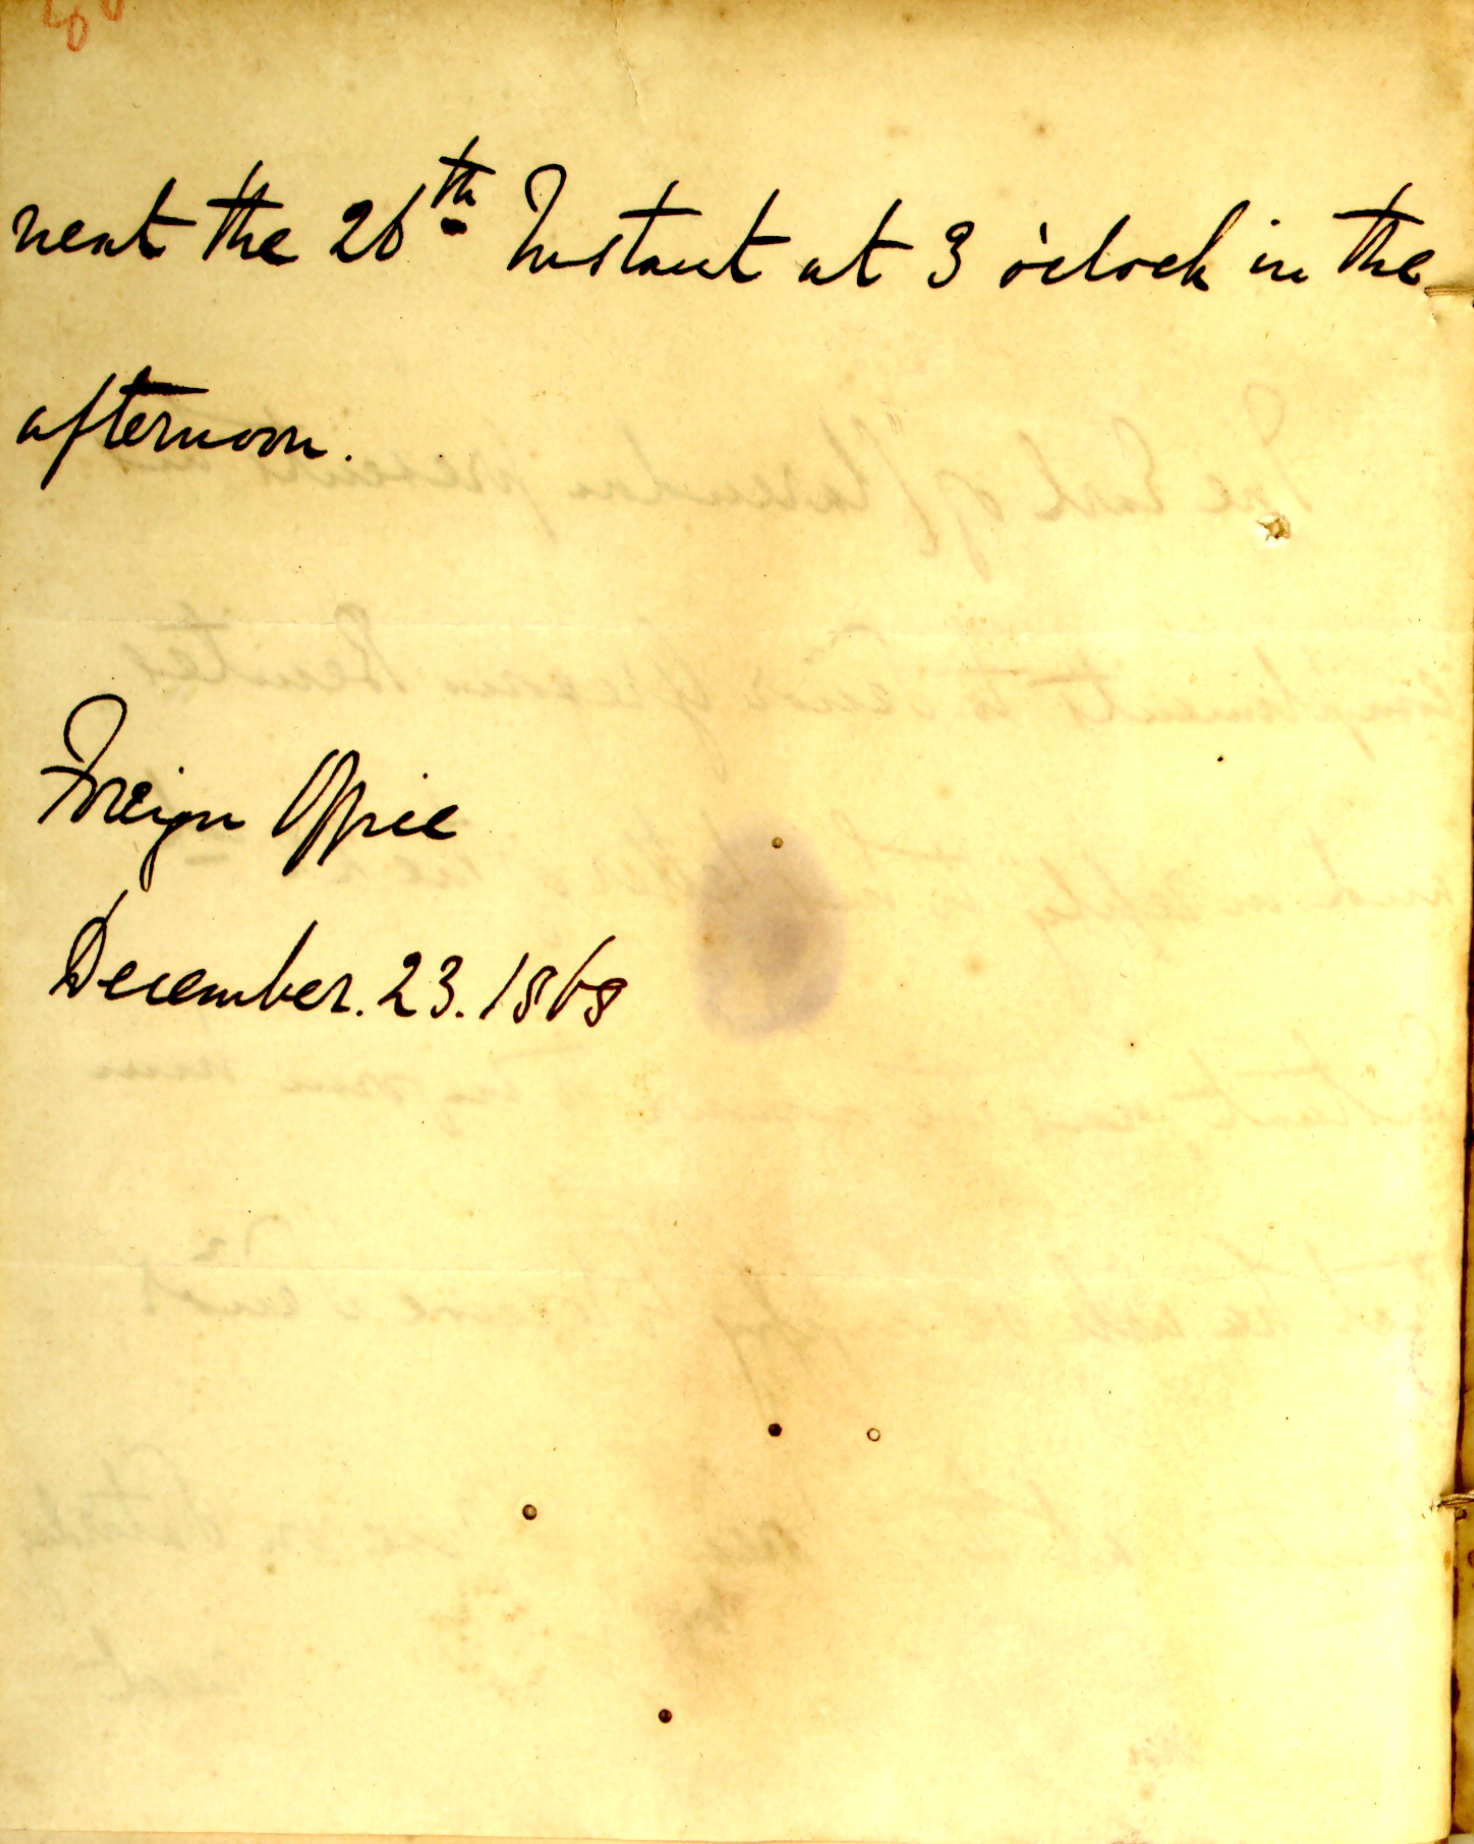 next the 26th Instant at 3 o'clock in the
afternoon.
Foreign Office
December. 23. 1868